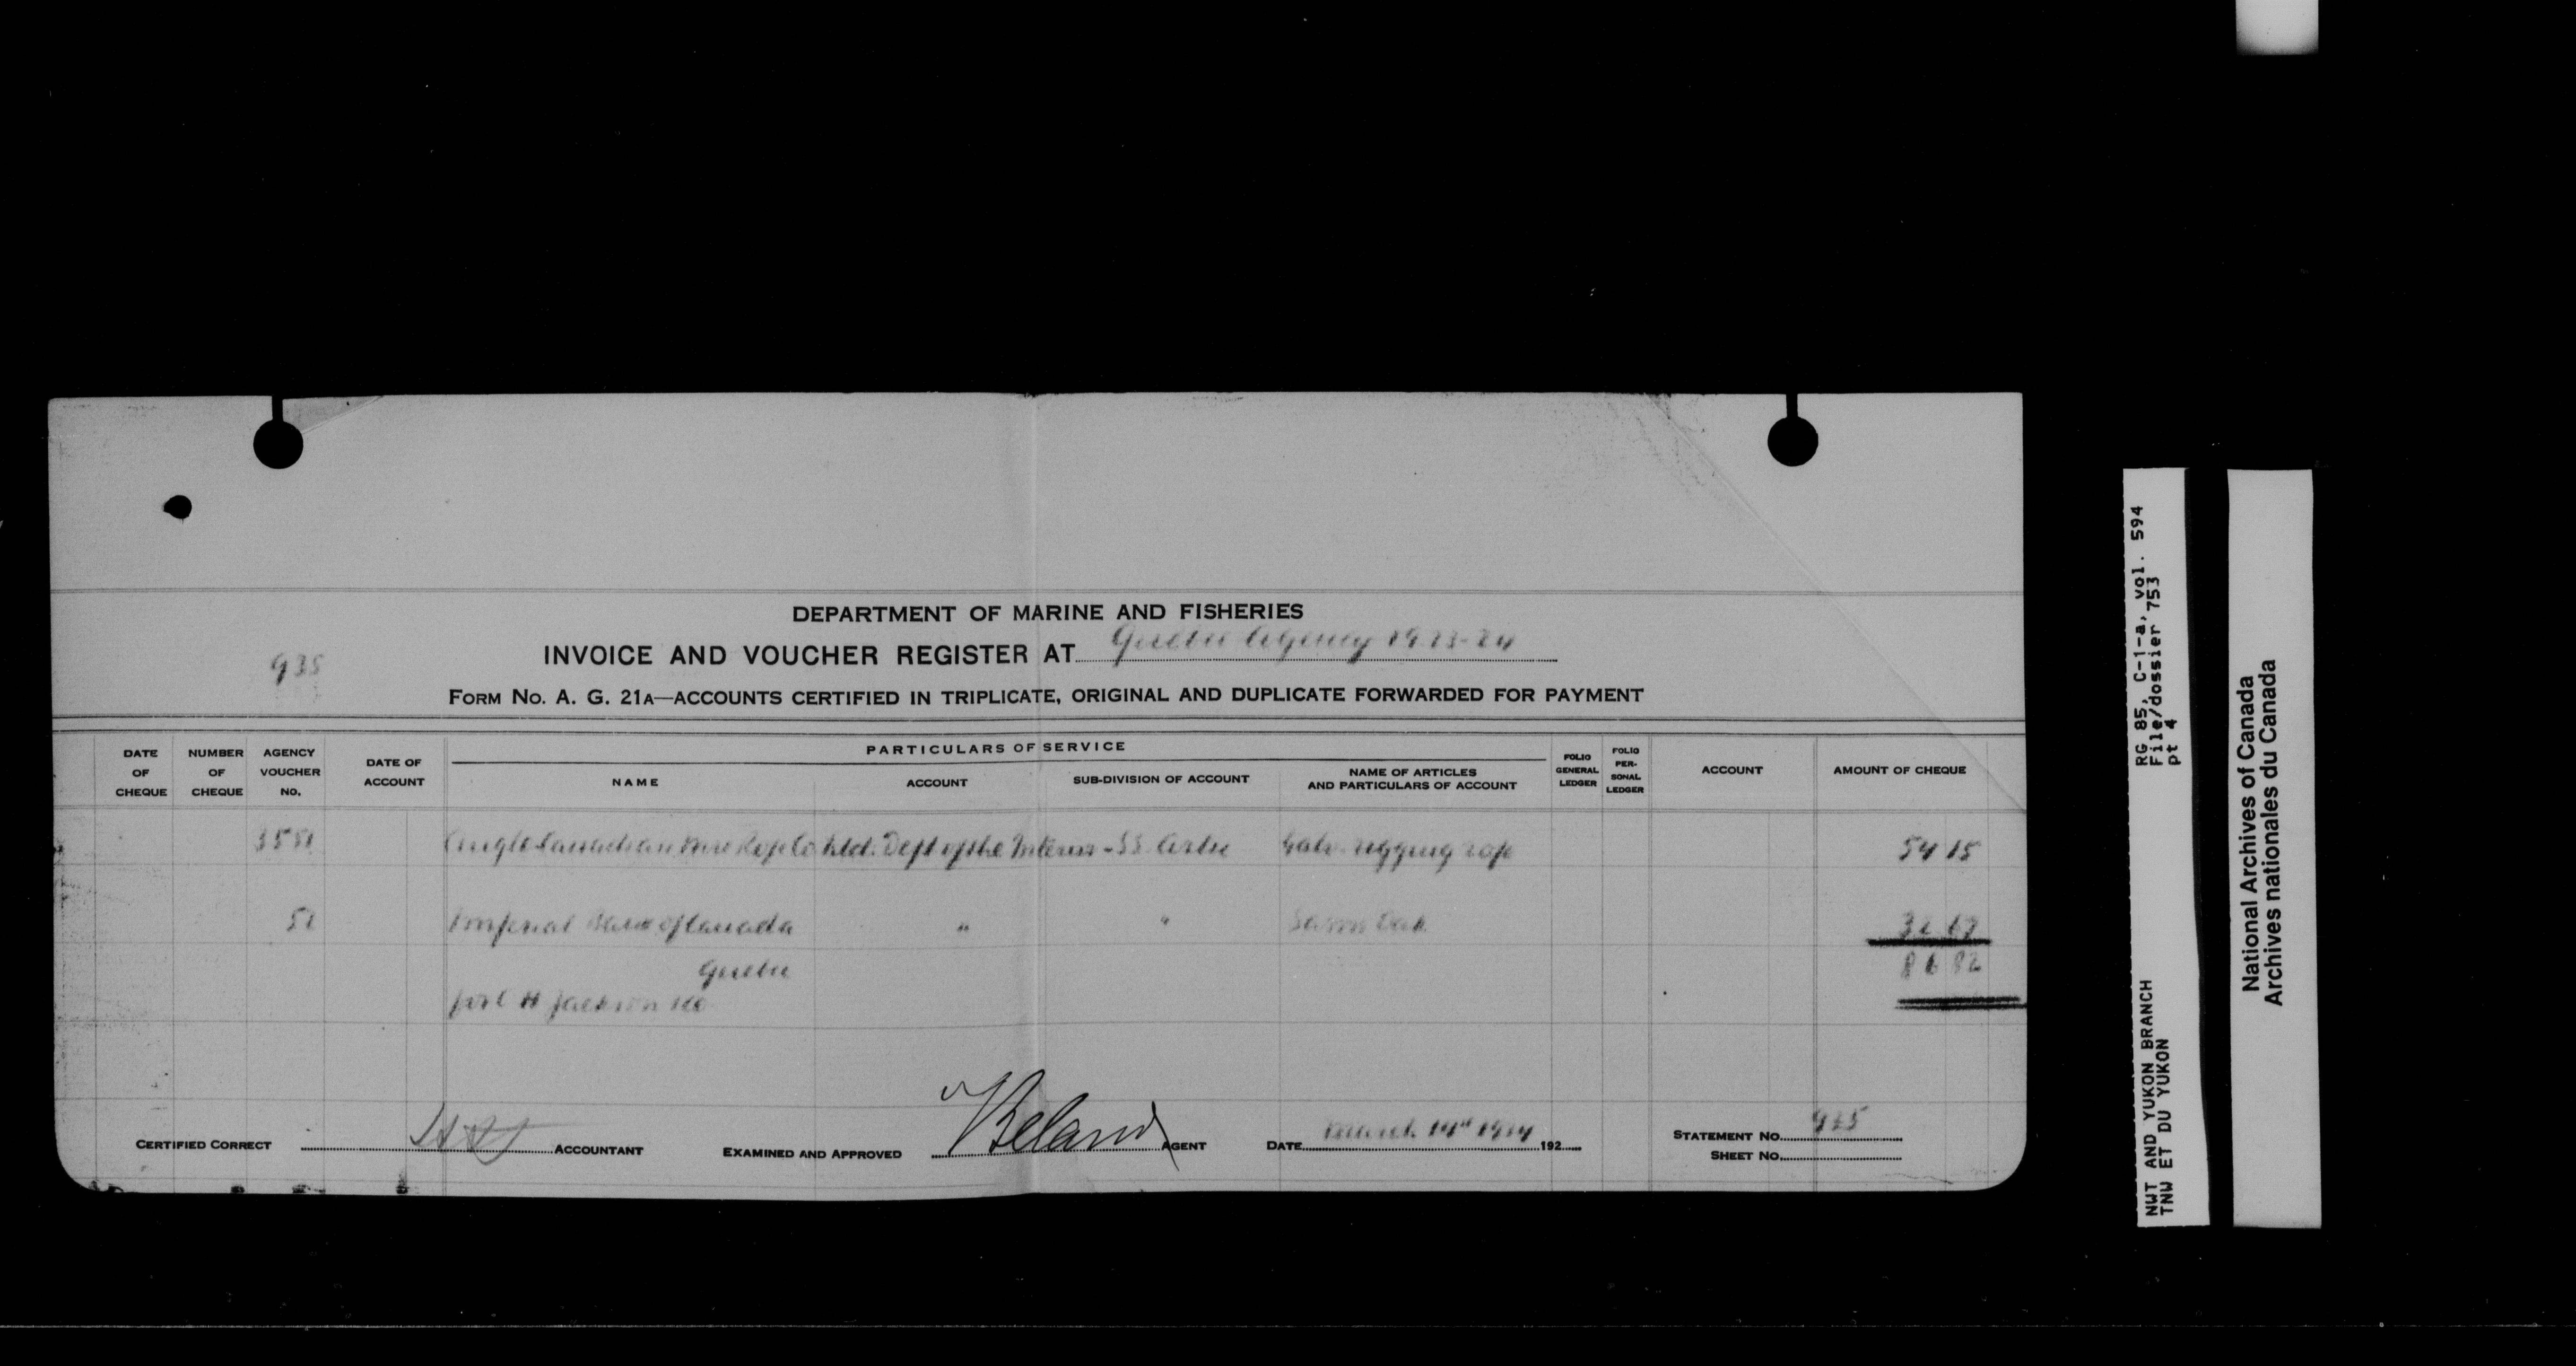 DEPARTMENT OF MARINE AND FISHERIES
INVOICE AND VOUCHER REGISTER AT Quebec Agency 1923-24
935
FORM NO. A. G. 21A—ACCOUNTS CERTIFIED IN TRIPLICATE, ORIGINAL AND DUPLICATE FORWARDED FOR PAYMENT
DATE OF CHEQUE
NUMBER OF CHEQUE
AGENCY VOUCHER NO.
DATE OF ACCOUNT
PARTICULARS OF SERVICE
NAME
ACCOUNT
SUB-DIVISION OF ACCOUNT
NAME OF ARTICLES AND PARTICULARS OF ACCOUNT
FOLIO GENERAL LEDGER
FOLIO PER-SONAL LEDGER
ACCOUNT
AMOUNT OF CHEQUE
3551 Anglo Canadian Wire Rope Co Ltd. Dept of the Interior - SS. Arctic Galv. rigging rope 54 15
52 Imperial Bank of Canada " " Sawn Oak 32 67
Quebec 86 82
for C H Jackson
CERTIFIED CORRECT ACCOUNTANT
EXAMINED AND APPROVED Beland AGENT
DATE March 14th 1924 192
STATEMENT NO. 935
SHEET NO.
RG 85, C-1-a, vol. 594
File/dossier 753
pt 4
NWT AND YUKON BRANCH
TNW ET DU YUKON
National Archives of Canada
Archives nationales du Canada